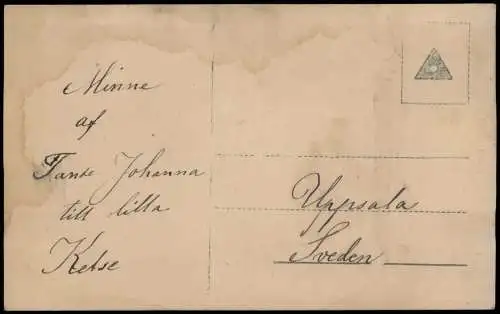 Minne
af
Tante Johanna
till lilla
Kelse
Uppsala
Sveden